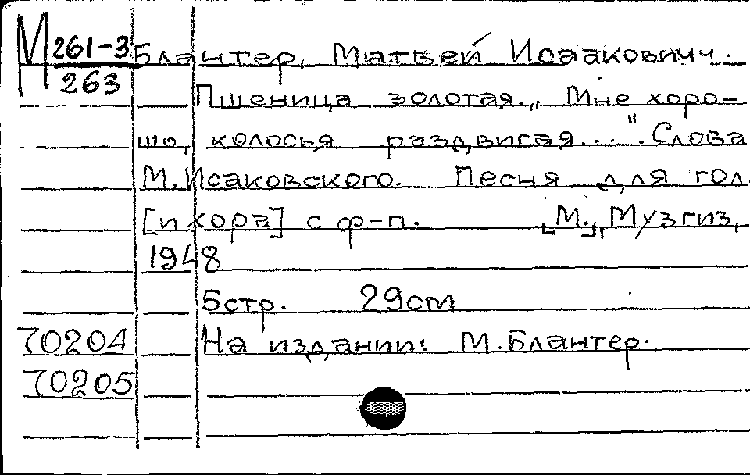 М 261-3 Блантер, Матвей Исаакович.
263
Пшеница золотая. „Мне хоро-
шо, колосья раздвигая...". Слова
М. Исаковского. Песня для гол.
[и хора] с ф-п. [М.], Музгиз,
1948
5 стр. 29 cm
70204 На издании: М. Блантер.
70205